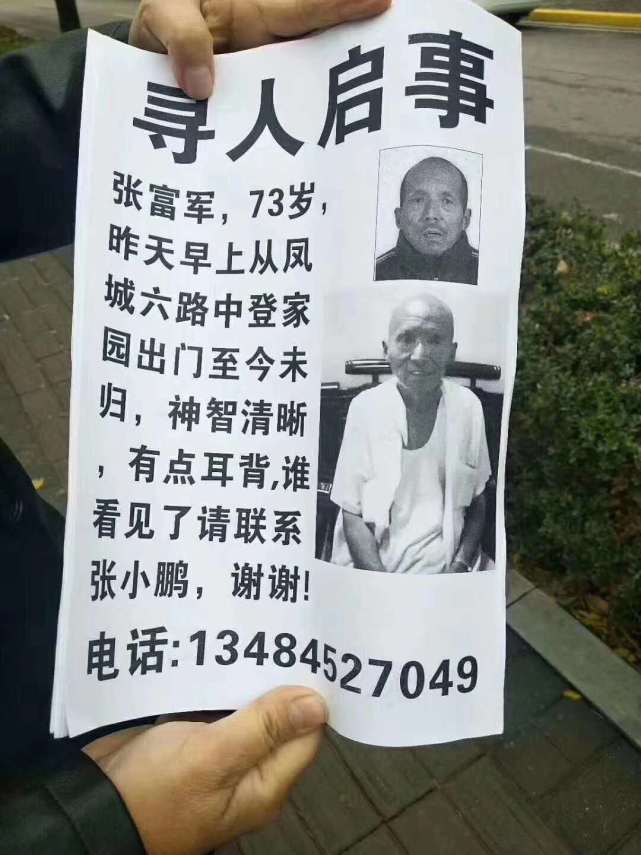 寻人启事
张富军，73岁，
昨天早上从凤
城六路中登家
园出门至今未
归，神智清晰
，有点耳背,谁
看见了请联系
张小鹏，谢谢!
电话:13484527049